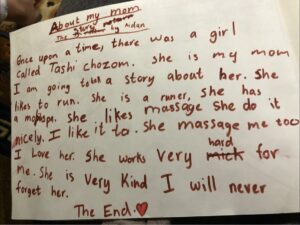 About my mom
The story by Aidan
Once upon a time, there was a girl
called Tashi chozom. she is my mom
I am going a story about her. She
likes to run. She is a runer, she has
a. she likes massage she do it
nicely. I like it to. She massage me too
I Love her. She works very hard for
me. She is very Kind I will never
forget her.
The End.❤